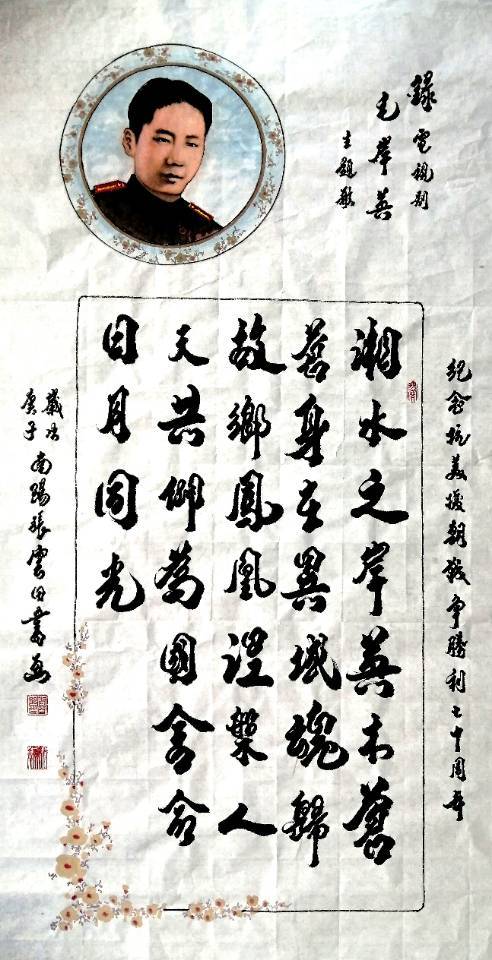 錄電視剧
毛岸英
主題歌
紀念抗美援朝战争勝利七十周年
湘水之岸英木蒼
蒼身在異域魂歸
故鄉鳳凰涅槃人
天共仰為國舍命
日月同光
歲次
庚子南陽張雲田書画